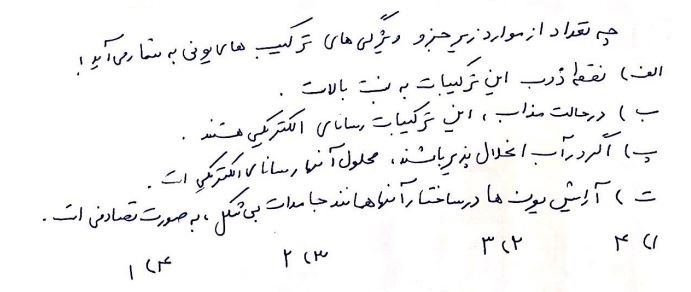 چه تعداد از موارد زیر جزو ویژگی های ترکیب های یونی به شمار می آید؟
الف) نقطه ذوب این ترکیبات به نسبت بالاست .
ب ) در حالت مذاب ، این ترکیبات رسانای الکتریکی هستند .
پ) اگر در آب انحلال پذیر باشند، محلول آنها رسانای الکتریکی است .
ت ) آرایش یون ها در ساختار آنها همانند جامدات بی شکل ، به صورت تصادفی است .
۱) ۴ ۲) ۳ ۳) ۲ ۴) ۱